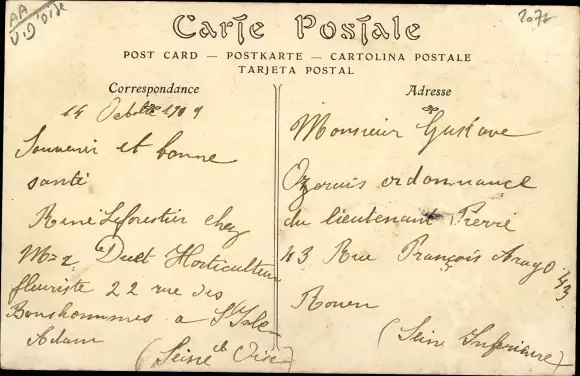 AA
V. D'Oise
2072
Carte Postale
POST CARD — POSTKARTE — CARTOLINA POSTALE
TARJETA POSTAL
Correspondance
14 Octobre 1909
Souvenir et bonne
santé
René Leforestier chez
Mr Duet Horticulteur
fleuriste 22 rue des
Bonshommes a St Isle
Adam
(Seine et Oise)
Adresse
Monsieur Gustave
Ozerais ordonnance
du lieutenant Pierré
43 Rue François Arago 43
Rouen
(Seine Inferieure)